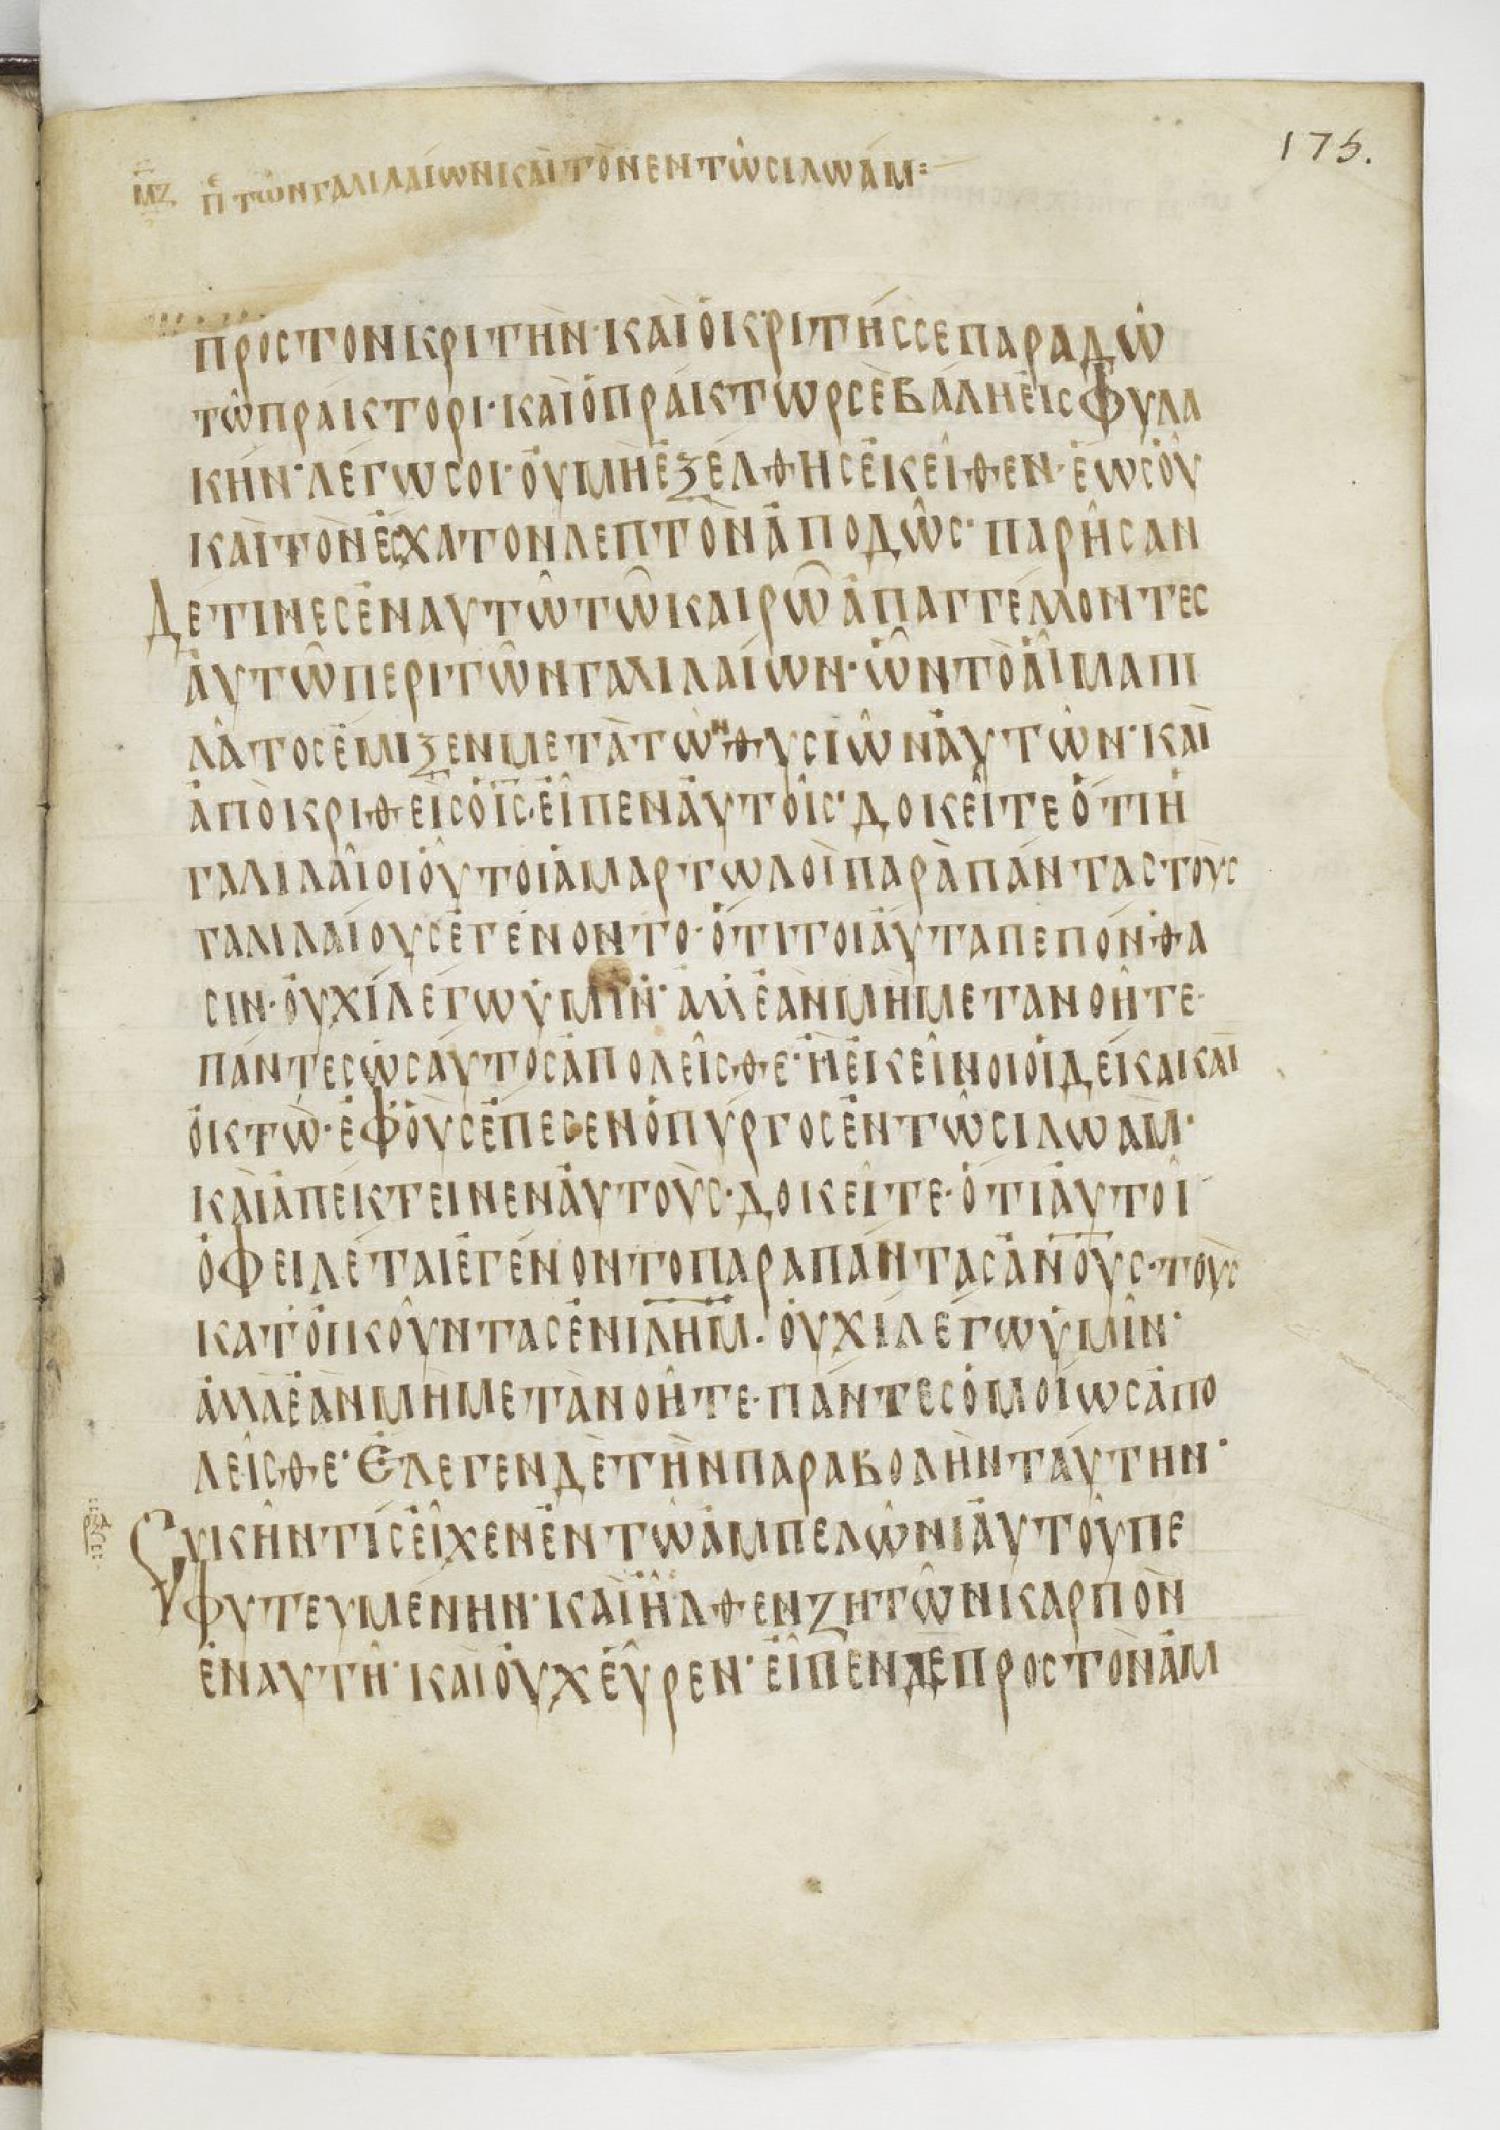 175.
ΜΖ ΠΕ ΤΩΝ ΓΑΛΙΛΑΙΩΝ ΚΑΙ ΤΟΝ ΕΝ ΤΩ ΣΙΛΩΑΜ:
ΠΡΟC ΤΟΝ ΚΡΙΤΗΝ· ΚΑΙ Ο ΚΡΙΤΗC CΕ ΠΑΡΑΔΩ
ΤΩ ΠΡΑΚΤΟΡΙ· ΚΑΙ Ο ΠΡΑΚΤΩΡ CΕ ΒΑΛΗ ΕΙC ΦΥΛΑ
ΚΗΝ· ΛΕΓΩ CΟΙ· ΟΥ ΜΗ ΕΞΕΛΘΗC ΕΚΕΙΘΕΝ· ΕΩC ΟΥ
ΚΑΙ ΤΟΝ ΕCΧΑΤΟΝ ΛΕΠΤΟΝ ΑΠΟΔΩC· ΠΑΡΗCΑΝ
ΔΕ ΤΙΝΕC ΕΝ ΑΥΤΩ ΤΩ ΚΑΙΡΩ ΑΠΑΓΓΕΛΛΟΝΤΕC
ΑΥΤΩ ΠΕΡΙ ΤΩΝ ΓΑΛΙΛΑΙΩΝ· ΩΝ ΤΟ ΑΙΜΑ ΠΙ
ΛΑΤΟC ΕΜΙΞΕΝ ΜΕΤΑ ΤΩΝ ΘΥCΙΩΝ ΑΥΤΩΝ· ΚΑΙ
ΑΠΟΚΡΙΘΕΙC Ο ΙC· ΕΙΠΕΝ ΑΥΤΟΙC· ΔΟΚΕΙΤΕ ΟΤΙ Η
ΓΑΛΙΛΑΙΟΙ ΟΥΤΟΙ ΑΜΑΡΤΩΛΟΙ ΠΑΡΑ ΠΑΝΤΑC ΤΟΥC
ΓΑΛΙΛΑΙΟΥC ΕΓΕΝΟΝΤΟ· ΟΤΙ ΤΟΙΑΥΤΑ ΠΕΠΟΝΘΑ
CΙΝ· ΟΥΧΙ ΛΕΓΩ ΥΜΙΝ· ΑΛΛ ΕΑΝ ΜΗ ΜΕΤΑΝΟΗΤΕ·
ΠΑΝΤΕC ΩCΑΥΤΟC ΑΠΟΛΕΙCΘΕ· Η ΕΚΕΙΝΟΙ ΟΙ ΔΕΚΑ ΚΑΙ
ΟΚΤΩ· ΕΦ ΟΥC ΕΠΕCΕΝ Ο ΠΥΡΓΟC ΕΝ ΤΩ CΙΛΩΑΜ·
ΚΑΙ ΑΠΕΚΤΕΙΝΕΝ ΑΥΤΟΥC· ΔΟΚΕΙΤΕ· ΟΤΙ ΑΥΤΟΙ
ΟΦΕΙΛΕΤΑΙ ΕΓΕΝΟΝΤΟ ΠΑΡΑ ΠΑΝΤΑC ΑΝΟΥC· ΤΟΥC
ΚΑΤΟΙΚΟΥΝΤΑC ΕΝ ΙΛΗΜ· ΟΥΧΙ ΛΕΓΩ ΥΜΙΝ·
ΑΛΛ ΕΑΝ ΜΗ ΜΕΤΑΝΟΗΤΕ· ΠΑΝΤΕC ΟΜΟΙΩC ΑΠΟ
ΛΕΙCΘΕ· ΕΛΕΓΕΝ ΔΕ ΤΗΝ ΠΑΡΑΒΟΛΗΝ ΤΑΥΤΗΝ·
CΥΚΗΝ ΤΙC ΕΙΧΕΝ ΕΝ ΤΩ ΑΜΠΕΛΩΝΙ ΑΥΤΟΥ ΠΕ
ΦΥΤΕΥΜΕΝΗΝ· ΚΑΙ ΗΛΘΕΝ ΖΗΤΩΝ ΚΑΡΠΟΝ
ΕΝ ΑΥΤΗ· ΚΑΙ ΟΥΧ ΕΥΡΕΝ· ΕΙΠΕΝ ΔΕ ΠΡΟC ΤΟΝ ΑΜ